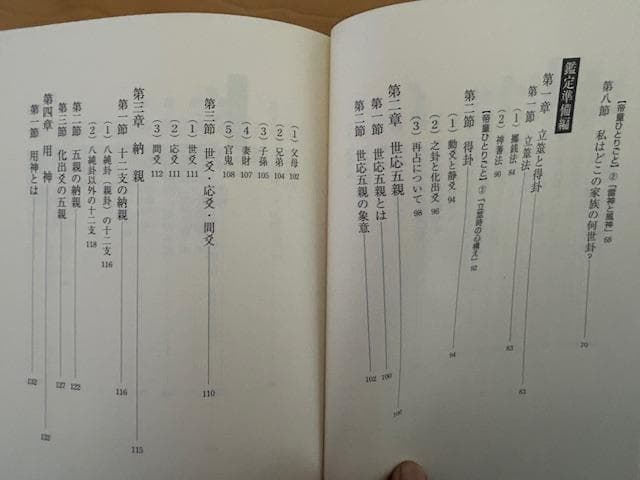 【帝童ひとりごと】②『雷神と風神』 66
第八節 私はどこの家族の何世卦? 70
鑑定準備編
第一章 立筮と得卦 83
第一節 立筮法 83
(1)擲銭法 84
(2)神蓍法 90
【帝童ひとりごと】③『立筮時の心構え』 92
第二節 得卦 94
(1)動爻と静爻 94
(2)之卦と化出爻 96
(3)再占について 98
第二章 世応五親 100
第一節 世応五親とは 100
第二節 世応五親の象意 102
(1)父母 102
(2)兄弟 104
(3)子孫 105
(4)妻財 107
(5)官鬼 108
第三節 世爻・応爻・間爻 110
(1)世爻 111
(2)応爻 111
(3)間爻 112
第三章 納親 115
第一節 十二支の納親 116
(1)八純卦(親卦)の十二支 116
(2)八純卦以外の十二支 118
第二節 五親の納親 122
第三節 化出爻の五親 127
第四章 用神 132
第一節 用神とは 132